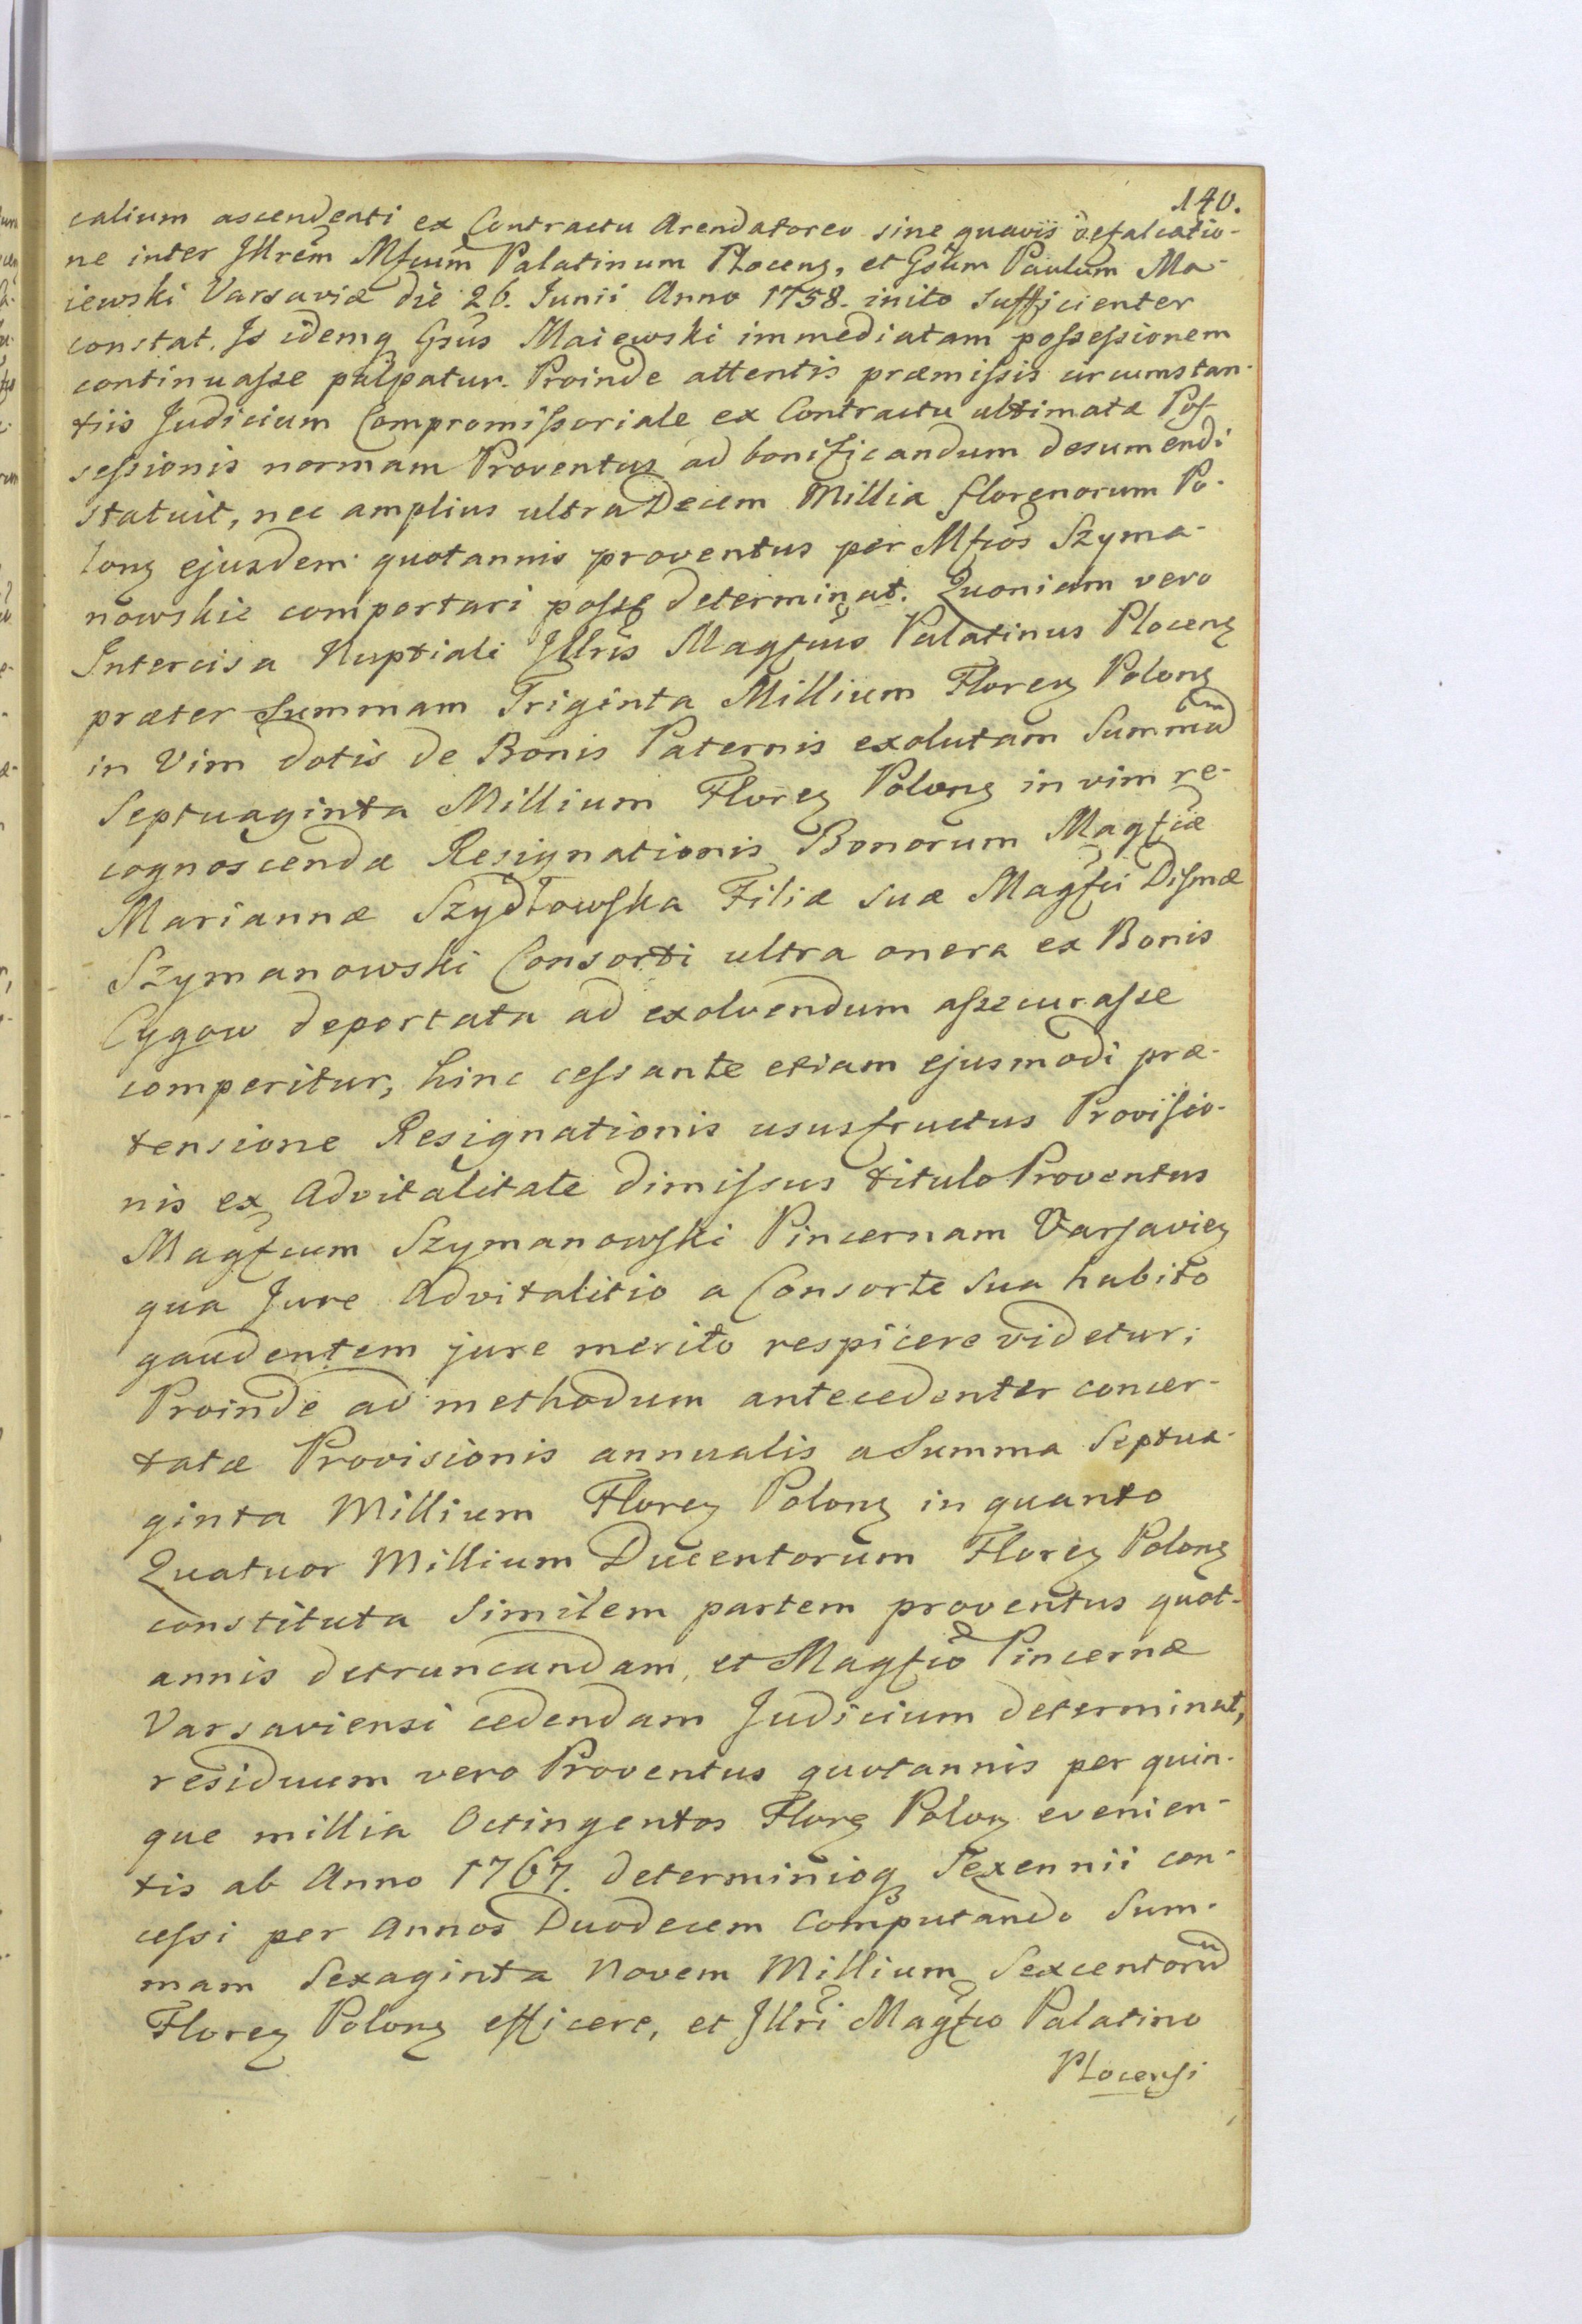 140.
calium ascendenti ex Contractu Arendatoreo sine quavis defalcatio-
ne inter Jllrem Mfcum Palatinum Ploceng, et Gsum Paulum Ma-
iewski Varsaviæ die 26. Junii Anno 1758. inito sufficienter
constat. Js idemq Gsus Maiewski immediatam poſseſsionem
continuaſse palpatur. Proinde attentis præmiſsis circumstan-
tiis Judicium Compromiſsoriale ex Contractu ultimatæ Poſ-
seſsionis normam Proventus ad bonificandum desumendi
statuit, nec amplius ultra Decem Millia florenorum Po-
long ejusdem quotannis proventus per Mfcos Szyma-
nowskie comportari poſse determinat. Quoniam vero
Intercisa Nuptiali Jllris Magfcus Palatinus Ploceng
præter Summam Triginta Millium Floreng Polong
in Vim dotis de Bonis Paternis exolutam Summam
Septuaginta Millium Floreg Polong in vim re-
cognoscendæ Resignationis Bonorum Magfcæ
Mariannæ Szydłowſka Filiæ suæ Magfci Diſmæ
Szymanowski Consorti ultra onera ex Bonis
Cygow deportata ad exolvendum aſsecuraſse
comperitur, hinc ceſsante etiam ejusmodi præ-
tensione Resignationis ususfructus Proviſio-
nis ex Advitalitate dimiſsus titulo Proventus
Magfcum Szymanowſki Pincernam Varſavieg
qua Jure Advitalitio a Consorte sua habito
gaudentem jure merito respicere videtur;
Proinde ad methodum antecedenter concer-
tatæ Provisionis annualis a Summa Septua-
ginta Millium Floreg Polong in quanto
Quatuor Millium Ducentorum Floreg Polong
constituta Similem partem proventus quot-
annis detruncandam, et Magfco Pincernæ
Varsaviensi cedendam Judicium determinat,
residuum vero Proventus quotannis per quin-
que millia Octingentos Florg Polog evenien-
tis ab Anno 1767. determinioq Sexennii con-
ceſsi per Annos Duodecem Computando Sum-
mam Sexaginta Novem Millium Sexcentorum
Floreg Polong efficere, et Jllri Magfco Palatino
Plocenſi